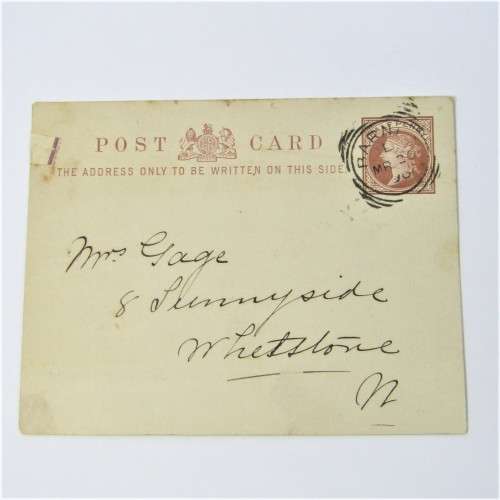 POST CARD
THE ADDRESS ONLY TO BE WRITTEN ON THIS SIDE
Mrs Gage
8 Sunnyside
Whetstone
N